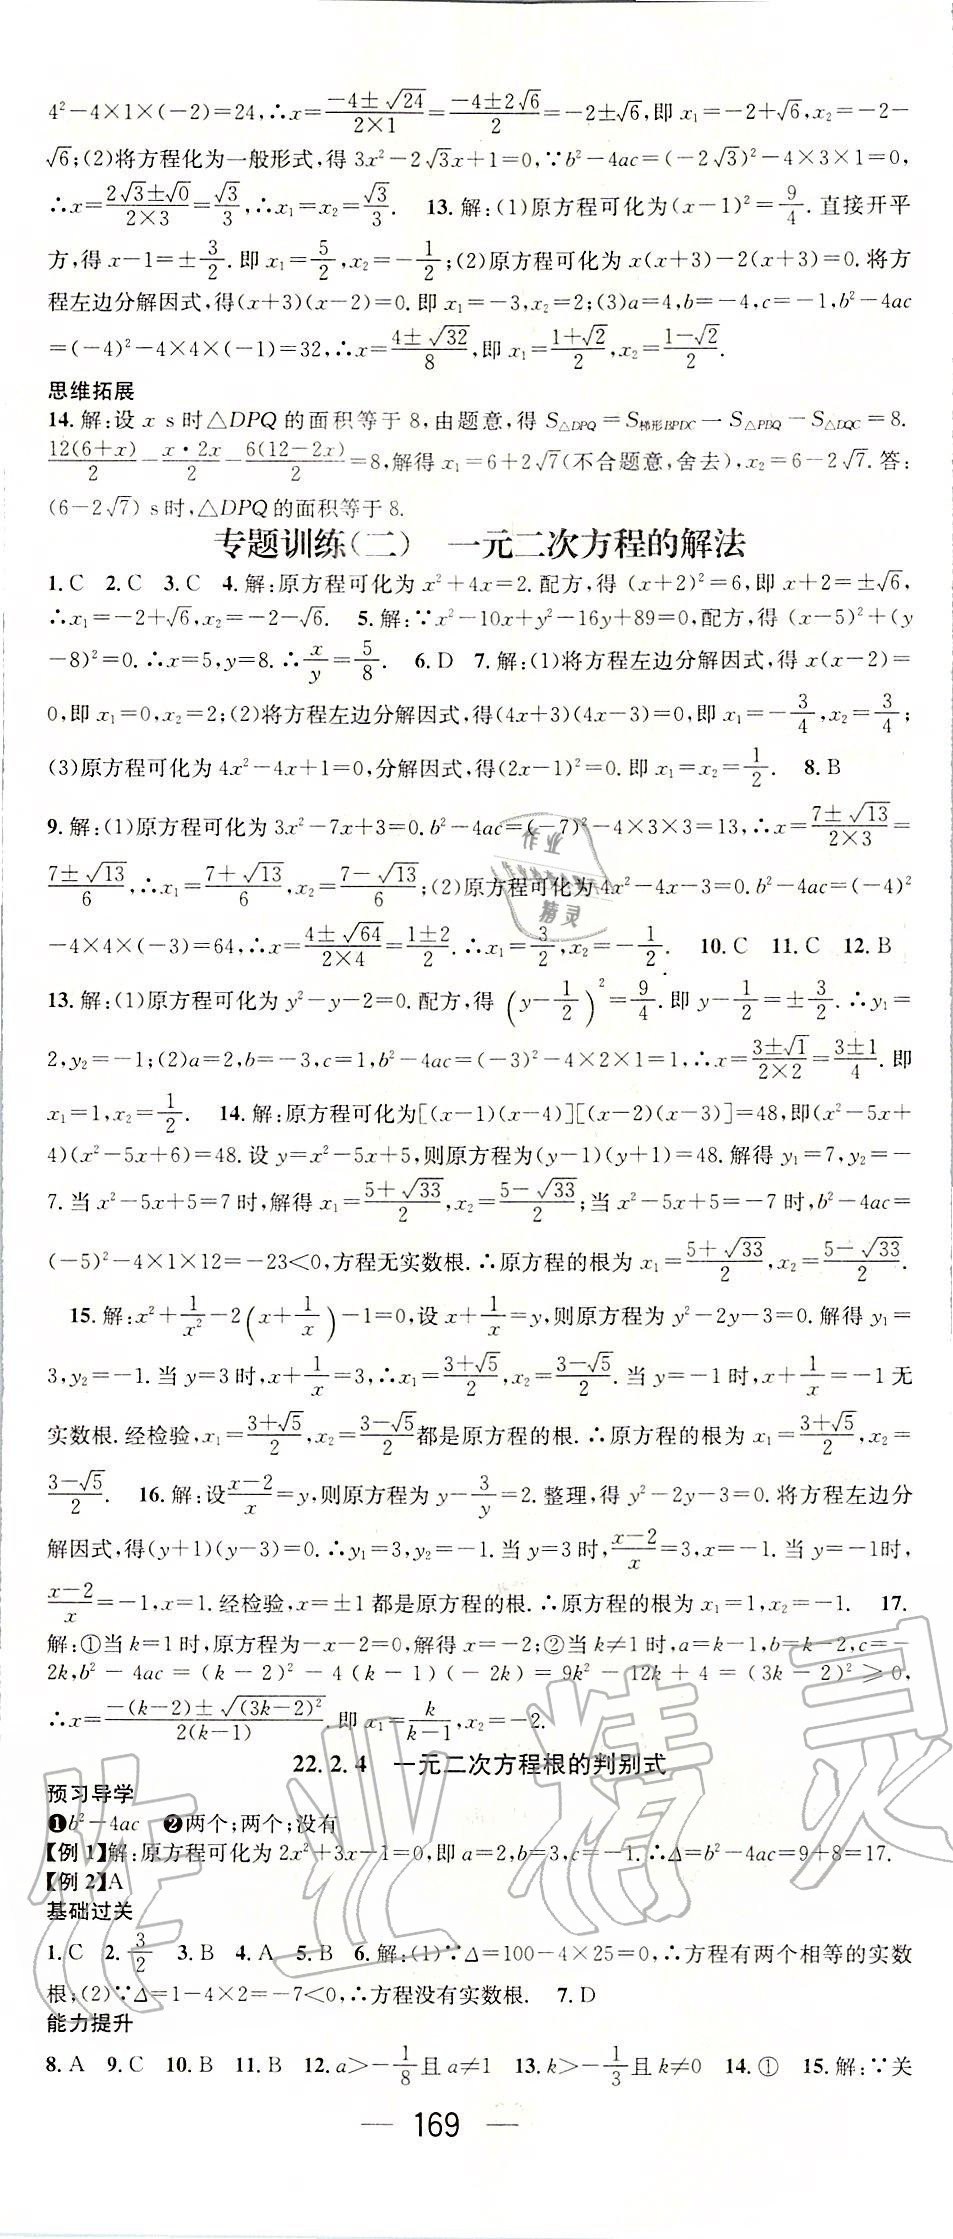 4²-4×1×(-2)=24,∴x=(-4±√24)/(2×1)=(-4±2√6)/2=-2±√6,即 x₁=-2+√6,x₂=-2-
√6;(2)将方程化为一般形式,得 3x²-2√3x+1=0,∵b²-4ac=(-2√3)²-4×3×1=0,
∴x=(2√3±√0)/(2×3)=√3/3,∴x₁=x₂=√3/3. 13.解:(1)原方程可化为(x-1)²=9/4.直接开平
方,得 x-1=±3/2.即 x₁=5/2,x₂=-1/2;(2)原方程可化为 x(x+3)-2(x+3)=0.将方
程左边分解因式,得(x+3)(x-2)=0.即 x₁=-3,x₂=2;(3)a=4,b=-4,c=-1,b²-4ac
=(-4)²-4×4×(-1)=32,∴x=(4±√32)/8,即 x₁=(1+√2)/2,x₂=(1-√2)/2.
思维拓展
14.解:设 x s时△DPQ的面积等于8,由题意,得 S△DPQ=S梯形BPDC-S△PBQ-S△DQC=8.
12(6+x)/2-x·2x/2-6(12-2x)/2=8,解得 x₁=6+2√7(不合题意,舍去),x₂=6-2√7.答:
(6-2√7) s时,△DPQ的面积等于8.
专题训练(二) 一元二次方程的解法
1.C 2.C 3.C 4.解:原方程可化为 x²+4x=2.配方,得 (x+2)²=6,即 x+2=±√6,
∴x₁=-2+√6,x₂=-2-√6. 5.解:∵x²-10x+y²-16y+89=0,配方,得 (x-5)²+(y
-8)²=0.∴x=5,y=8.∴x/y=5/8. 6.D 7.解:(1)将方程左边分解因式,得 x(x-2)=
0,即 x₁=0,x₂=2;(2)将方程左边分解因式,得(4x+3)(4x-3)=0,即 x₁=-3/4,x₂=3/4;
(3)原方程可化为 4x²-4x+1=0,分解因式,得(2x-1)²=0.即 x₁=x₂=1/2. 8.B
9.解:(1)原方程可化为 3x²-7x+3=0.b²-4ac=(-7)²-4×3×3=13,∴x=(7±√13)/(2×3)=
(7±√13)/6,∴x₁=(7+√13)/6,x₂=(7-√13)/6;(2)原方程可化为 4x²-4x-3=0.b²-4ac=(-4)²
-4×4×(-3)=64,∴x=(4±√64)/(2×4)=(1±2)/2.∴x₁=3/2,x₂=-1/2. 10.C 11.C 12.B
13.解:(1)原方程可化为 y²-y-2=0.配方,得 (y-1/2)²=9/4.即 y-1/2=±3/2.∴y₁=
2,y₂=-1;(2)a=2,b=-3,c=1,b²-4ac=(-3)²-4×2×1=1,∴x=(3±√1)/(2×2)=(3±1)/4.即
x₁=1,x₂=1/2. 14.解:原方程可化为[(x-1)(x-4)][(x-2)(x-3)]=48,即(x²-5x+
4)(x²-5x+6)=48.设 y=x²-5x+5,则原方程为(y-1)(y+1)=48.解得 y₁=7,y₂=-
7.当 x²-5x+5=7时,解得 x₁=(5+√33)/2,x₂=(5-√33)/2;当 x²-5x+5=-7时,b²-4ac=
(-5)²-4×1×12=-23<0,方程无实数根.∴原方程的根为 x₁=(5+√33)/2,x₂=(5-√33)/2.
15.解:x²+1/x²-2(x+1/x)-1=0,设 x+1/x=y,则原方程为 y²-2y-3=0.解得 y₁=
3,y₂=-1.当 y=3时,x+1/x=3,∴x₁=(3+√5)/2,x₂=(3-√5)/2.当 y=-1时,x+1/x=-1无
实数根.经检验,x₁=(3+√5)/2,x₂=(3-√5)/2都是原方程的根.∴原方程的根为 x₁=(3+√5)/2,x₂=
(3-√5)/2. 16.解:设(x-2)/x=y,则原方程为 y-3/y=2.整理,得 y²-2y-3=0.将方程左边分
解因式,得(y+1)(y-3)=0.∴y₁=3,y₂=-1.当 y=3时,(x-2)/x=3,x=-1.当 y=-1时,
(x-2)/x=-1,x=1.经检验,x=±1都是原方程的根.∴原方程的根为 x₁=1,x₂=-1. 17.
解:①当 k=1时,原方程为-x-2=0,解得 x=-2;②当 k≠1时,a=k-1,b=k-2,c=-
2k,b²-4ac=(k-2)²-4(k-1)(-2k)=9k²-12k+4=(3k-2)²≥0,
∴x=(-(k-2)±√(3k-2)²)/(2(k-1)).即 x₁=k/(k-1),x₂=-2.
22.2.4 一元二次方程根的判别式
预习导学
❶b²-4ac ❷两个;两个;没有
【例1】解:原方程可化为 2x²+3x-1=0,即 a=2,b=3,c=-1.∴Δ=b²-4ac=9+8=17.
【例2】A
基础过关
1.C 2.3/2 3.B 4.A 5.B 6.解:(1)∵Δ=100-4×25=0,∴方程有两个相等的实数
根;(2)∵Δ=1-4×2=-7<0,∴方程没有实数根. 7.D
能力提升
8.A 9.C 10.B 11.B 12.a>-1/8且 a≠1 13.k>-1/3且 k≠0 14.① 15.解:∵关
— 169 —
作业精灵